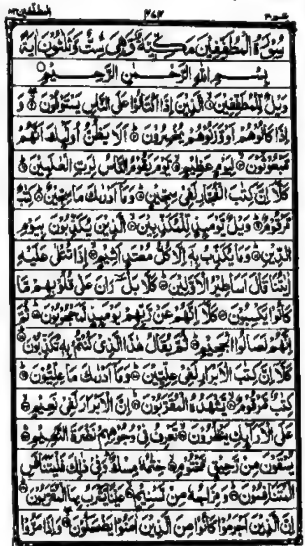 المطففين ٨٣ ٢٤٢ عم ٣٠
سورة المطففين مكية وهي ست وثلثون اية
بسم الله الرحمن الرحيم
ويل للمطففين الذين اذا اكتالوا على الناس يستوفون و
اذا كالوهم او وزنوهم يخسرون الا يظن اولئك انهم
مبعوثون ليوم عظيم يوم يقوم الناس لرب العلمين
كلا ان كتب الفجار لفي سجين وما ادرىك ما سجين كتب
مرقوم ويل يومئذ للمكذبين الذين يكذبون بيوم
الدين وما يكذب به الا كل معتد اثيم اذا تتلى عليه
ايتنا قال اساطير الاولين كلا بل ران على قلوبهم ما
كانوا يكسبون كلا انهم عن ربهم يومئذ لمحجوبون ثم
انهم لصالوا الجحيم ثم يقال هذا الذي كنتم به تكذبون
كلا ان كتب الابرار لفي عليين وما ادرىك ما عليون
كتب مرقوم يشهده المقربون ان الابرار لفي نعيم
على الارائك ينظرون تعرف في وجوههم نضرة النعيم
يسقون من رحيق مختوم ختمه مسك وفي ذلك فليتنافس
المتنافسون ومزاجه من تسنيم عينا يشرب بها المقربون
ان الذين اجرموا كانوا من الذين امنوا يضحكون واذا مروا